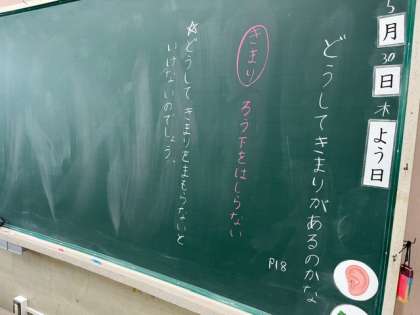 5月30日木よう日
どうしてきまりがあるのかな
P18
きまり ろう下をはしらない
☆どうしてきまりをまもらないと
いけないのでしょう。